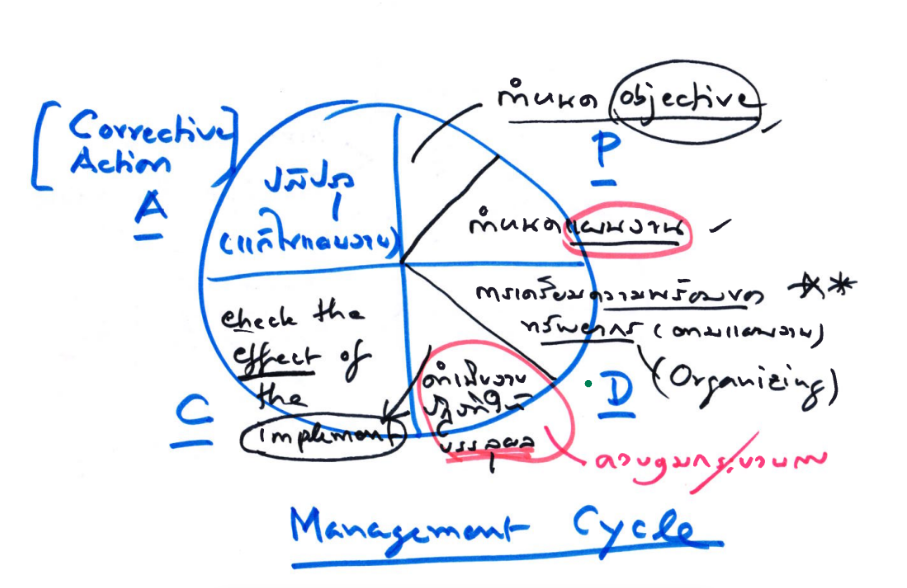 กำหนด objective
P
[Corrective]
Action
A
ปรับปรุง
(แก้ไขแผนงาน)
กำหนดแผนงาน
การเตรียมความพร้อมของ
ทรัพยากร (ตามแผนงาน)
(Organizing)
D
check the
effect of
the
implement
C
ดำเนินงาน
ปฏิบัติให้
บรรลุผล
ควบคุมกระบวนการ
Management Cycle